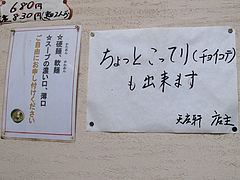 680円
830円(麺2玉)
☆硬麺、軟麺
☆スープの濃い口、薄口
ご自由にお申し付けください
ちょっとこってり(チョイコテ)
も出来ます
天天軒 店主